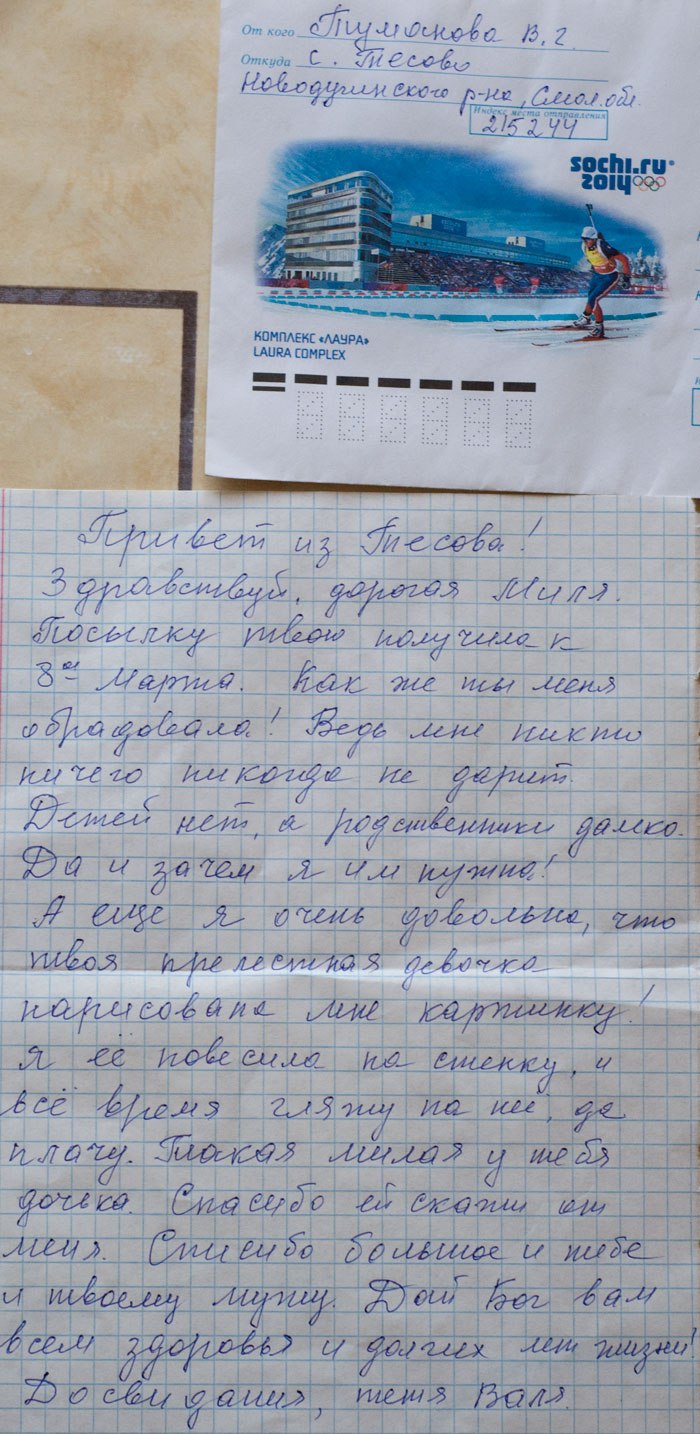 От кого Туманова В. Г.
Откуда с. Тесово
Новодугинского р-на, Смол. обл.
Индекс места отправления
215244
sochi.ru
2014
КОМПЛЕКС «ЛАУРА»
LAURA COMPLEX
Привет из Тесова!
Здравствуй, дорогая Миля.
Посылку твою получила к
8ое Марта. Как же ты меня
обрадовала! Ведь мне никто
ничего никогда не дарит.
Детей нет, а родственники далеко.
Да и зачем я им нужна!
А еще я очень довольна, что
твоя прелестная девочка
нарисовала мне картинку!
Я её повесила на стенку, и
всё время гляжу на неё, да
плачу. Такая милая у тебя
дочька. Спасибо ей скажи от
меня. Спасибо большое и тебе
и твоему мужу. Дай Бог вам
всем здоровья и долгих лет жизни!
До свидания, тетя Валя.